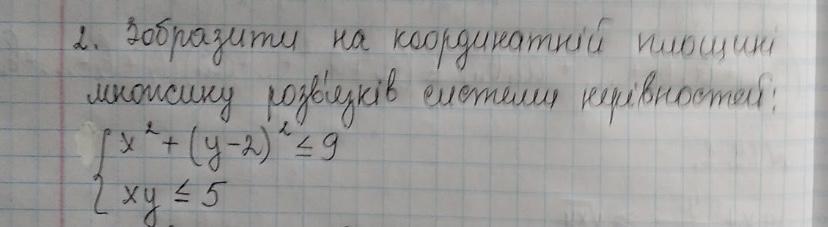 2. Зобразити на координатній площині
множину розв'язків системи нерівностей:
x² + (y-2)² ≤ 9
xy ≤ 5